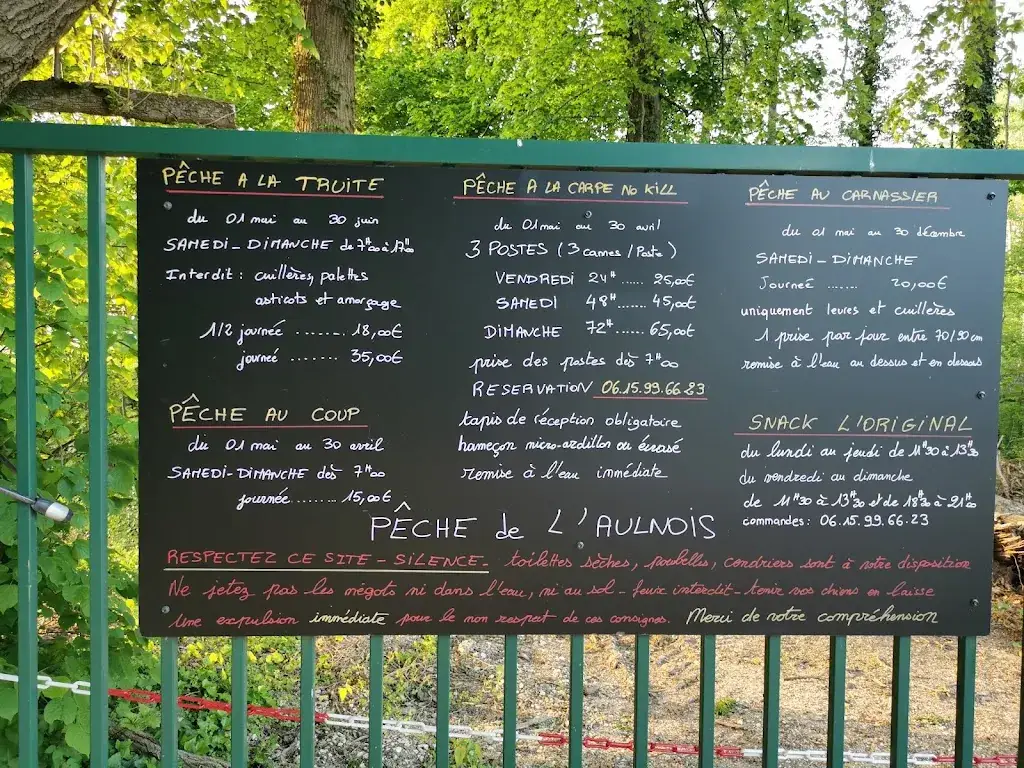 PÊCHE A LA TRUITE
du 01 mai au 30 juin
SAMEDI-DIMANCHE de 7H00 à 17H00
Interdit : cuillères, palettes
asticots et amorçage
1/2 journée ........ 18,00€
journée ....... 35,00€
PÊCHE AU COUP
du 01 mai au 30 avril
SAMEDI-DIMANCHE dès 7H00
journée ........ 15,00€
PÊCHE A LA CARPE NO KILL
du 01 mai au 30 avril
3 POSTES (3 cannes/Poste)
VENDREDI 24H ..... 25,00€
SAMEDI 48H ...... 45,00€
DIMANCHE 72H ...... 65,00€
prise des postes dès 7H00
RESERVATION 06.15.99.66.23
tapis de réception obligatoire
hameçon micro-ardillon ou écrasé
remise à l'eau immédiate
PÊCHE AU CARNASSIER
du 01 mai au 30 décembre
SAMEDI-DIMANCHE
Journeé ....... 20,00€
uniquement leures et cuillères
1 prise par jour entre 70/90 cm
remise à l'eau au dessus et en dessous
SNACK L'ORIGINAL
du lundi au jeudi de 11H30 à 13H30
du vendredi au dimanche
de 11H30 à 13H30 et de 18H30 à 21H00
commandes : 06.15.99.66.23
PÊCHE de L'AULNOIS
RESPECTEZ CE SITE - SILENCE - toilettes sèches, poubelles, cendriers sont à votre disposition
Ne jetez pas les mégots ni dans l'eau, ni au sol - feux interdit - tenir vos chiens en laisse
Une expulsion immédiate pour le non respect de ces consignes. Merci de votre compréhension